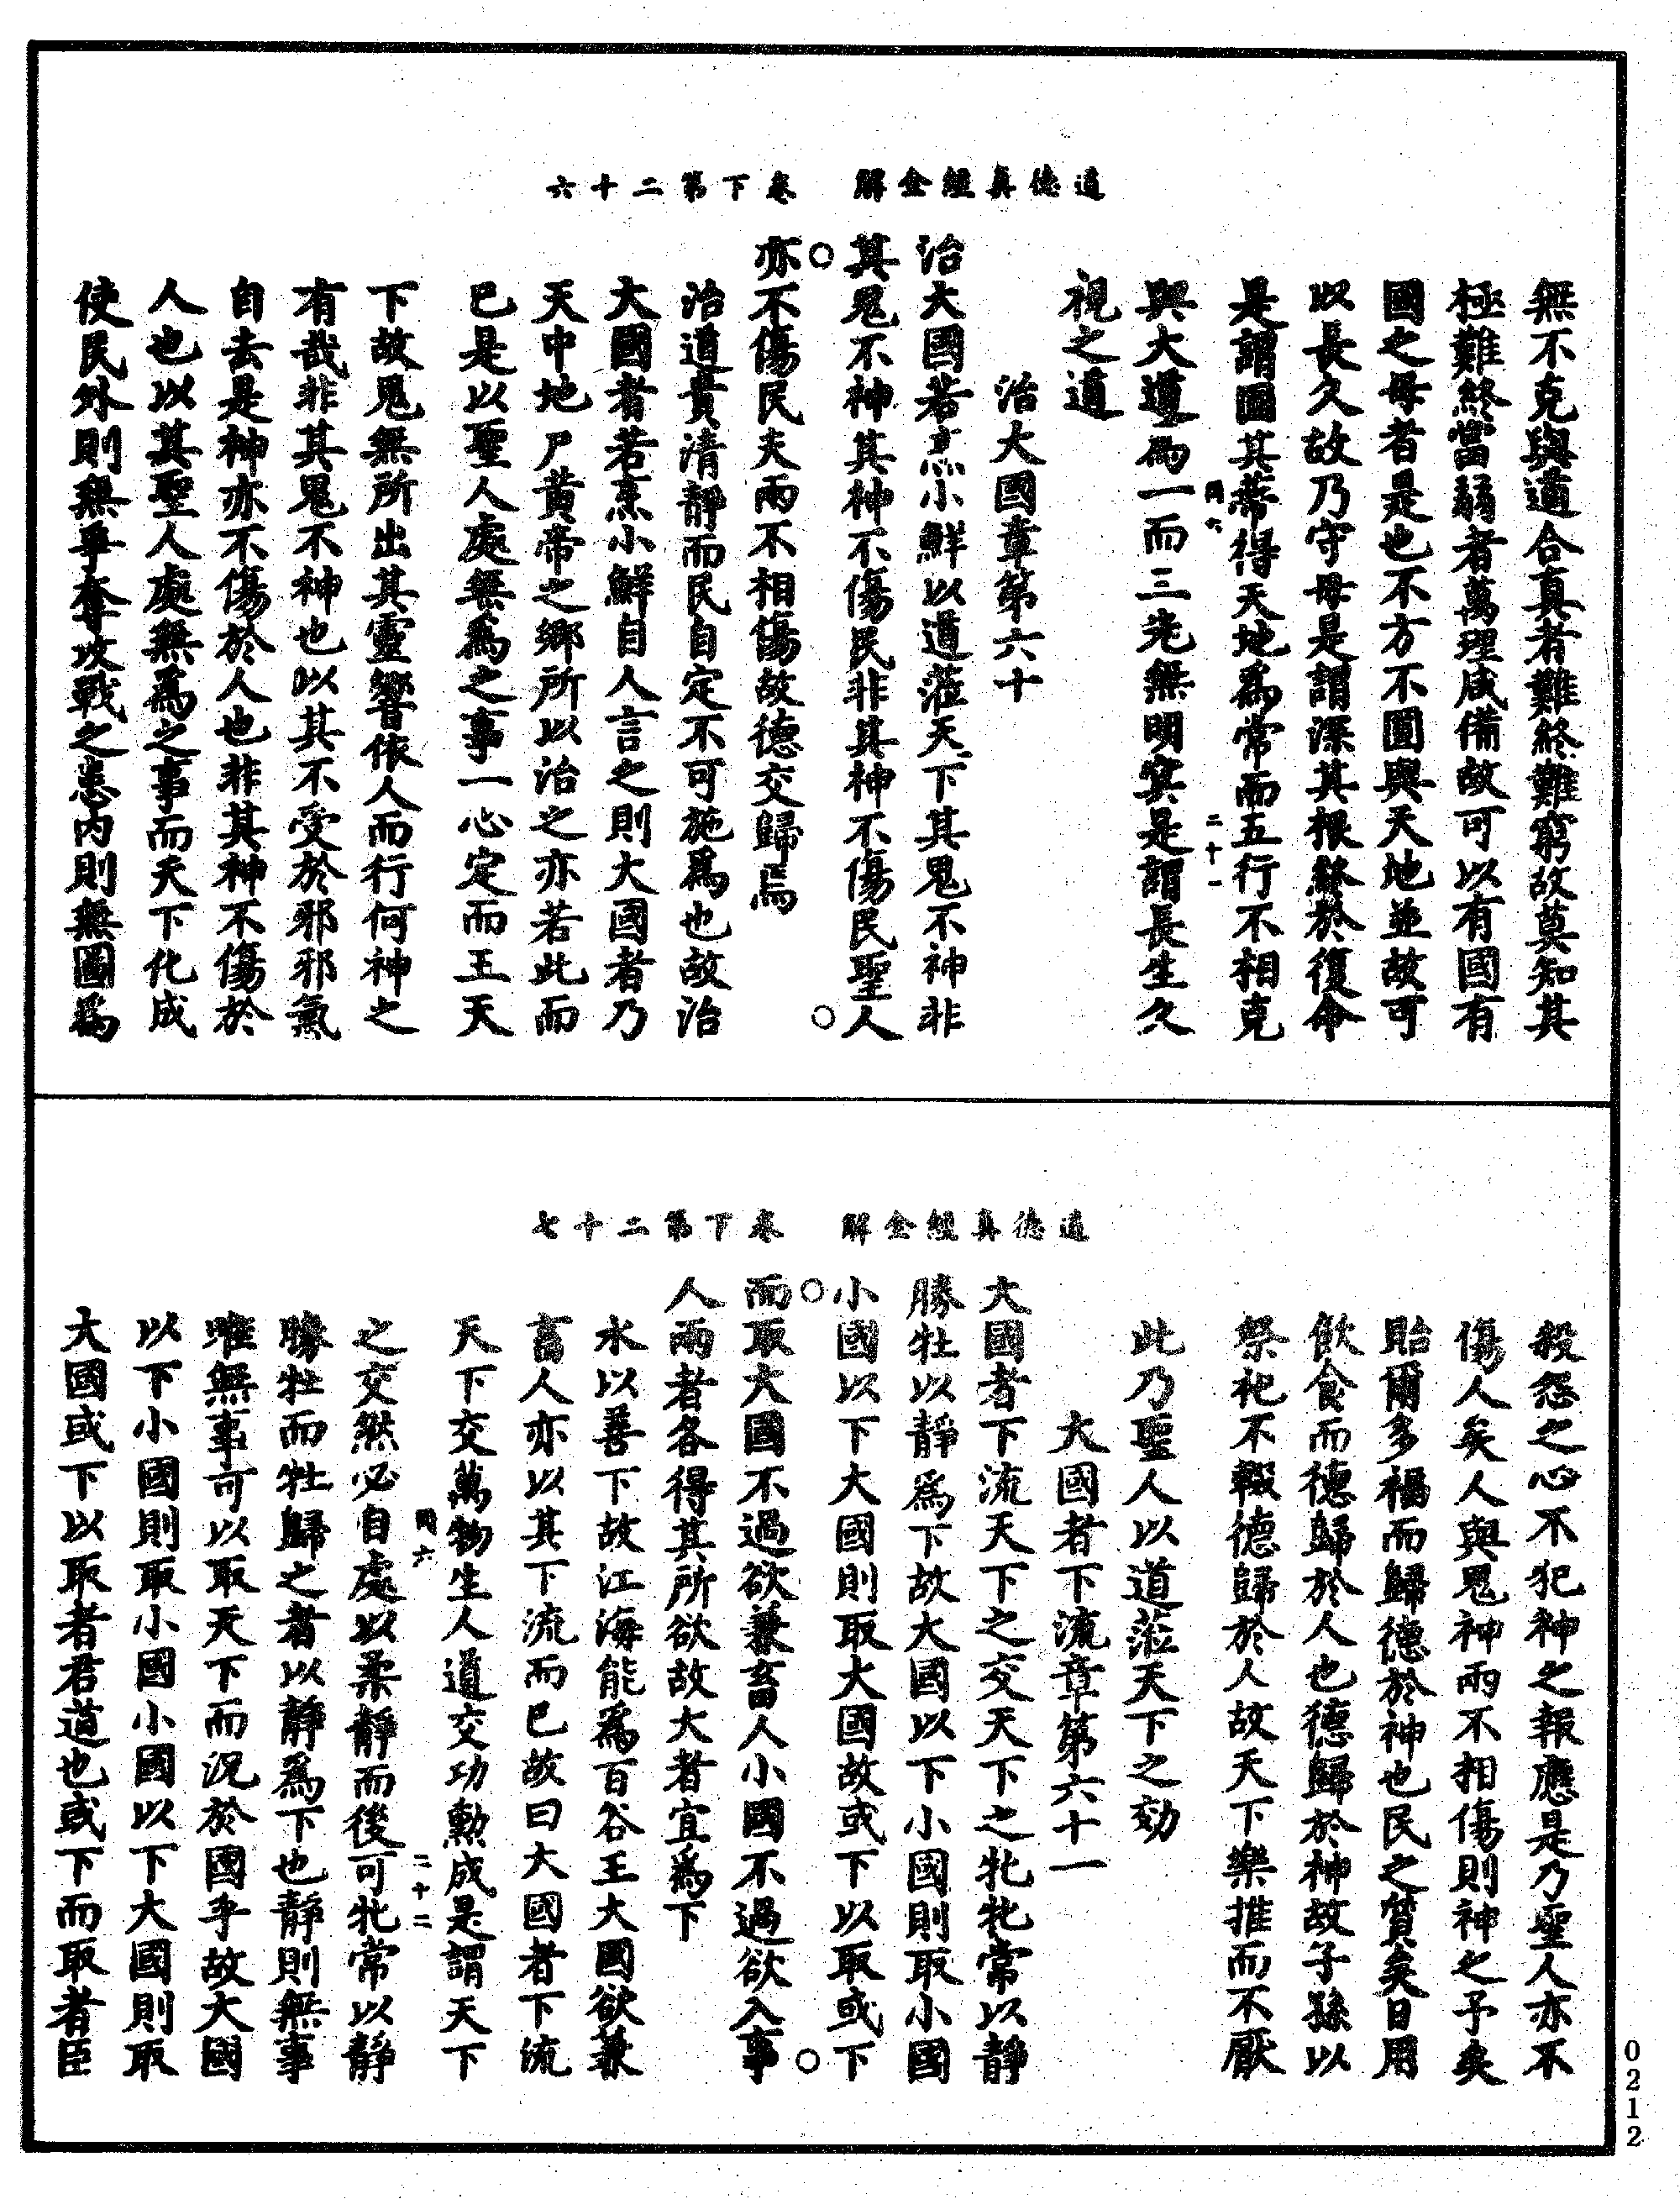 道德真經全解　卷下第二十六
無不克與道合真者難終難窮故莫知其
極難終當弱者萬理咸備故可以有國有
國之母者是也不方不圓與天地並故可
以長久故乃守母是謂深其根終於復命
是謂固其蒂得天地爲常而五行不相克
罔六　二十一
與大道爲一而三光無明冥是謂長生久
視之道
治大國章第六十
治大國若烹小鮮以道蒞天下其鬼不神非
其鬼不神其神不傷民非其神不傷民聖人
亦不傷民夫兩不相傷故德交歸焉
治道貴清靜而民自定不可施爲也故治
大國者若烹小鮮自人言之則大國者乃
天中地尸黃帝之鄉所以治之亦若此而
巳是以聖人處無爲之事一心定而王天
下故鬼無所出其靈響依人而行何神之
有哉非其鬼不神也以其不受於邪邪氣
自去是神亦不傷於人也非其神不傷於
人也以其聖人處無爲之事而天下化成
使民外則無爭奪攻戰之患內則無圖爲
道德真經全解　卷下第二十七
殺怨之心不犯神之報應是乃聖人亦不
傷人矣人與鬼神兩不相傷則神之予矣
貽爾多福而歸德於神也民之質矣日用
飲食而德歸於人也德歸於神故子孫以
祭祀不輟德歸於人故天下樂推而不厭
此乃聖人以道蒞天下之効
大國者下流章第六十一
大國者下流天下之交天下之牝牝常以靜
勝牡以靜爲下故大國以下小國則取小國
小國以下大國則取大國故或下以取或下
而取大國不過欲兼畜人小國不過欲入事
人兩者各得其所欲故大者宜爲下
水以善下故江海能爲百谷王大國欲兼
畜人亦以其下流而巳故曰大國者下流
天下交萬物生人道交功勳成是謂天下
罔六　二十二
之交然必自處以柔靜而後可牝常以靜
勝牡而牡歸之者以靜爲下也靜則無事
唯無事可以取天下而況於國乎故大國
以下小國則取小國小國以下大國則取
大國或下以取者君道也或下而取者臣
0212